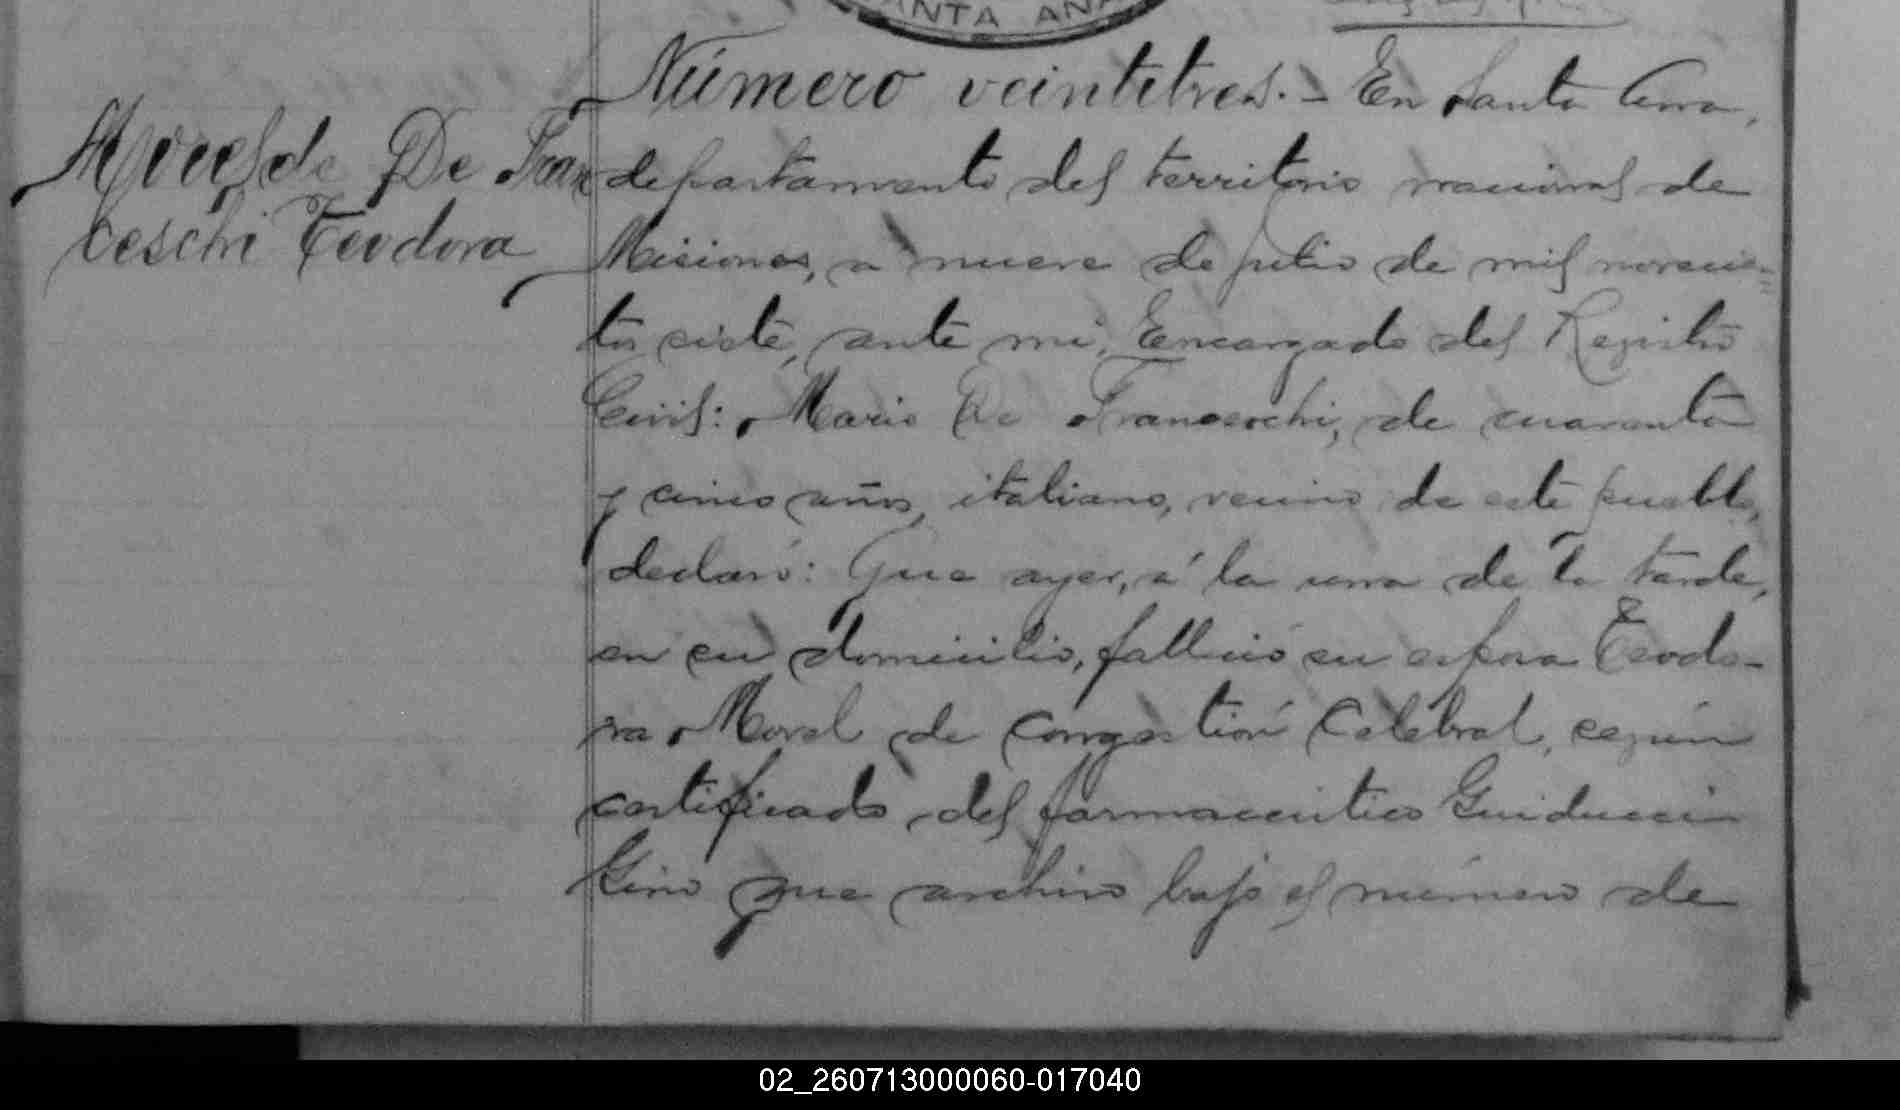 SANTA ANA
Número veintitres. - En Santa Ana,
departamento del territorio nacional de
Misiones, a nueve de julio de mil novecie=
tos siete, ante mi, Encargado del Registro
Civil: Mario De Franceschi, de cuarenta
y cinco años, italiano, vecino de este pueblo,
declaró: Que ayer, á la una de la tarde,
en su domicilio, falleció su esposa Teodo-
ra Morel de Congestión Celebral, según
certificado del farmaceutico Guiducci
Gino que archivo bajo el número de
Morel de De Fran
ceschi Teodora
02_260713000060-017040